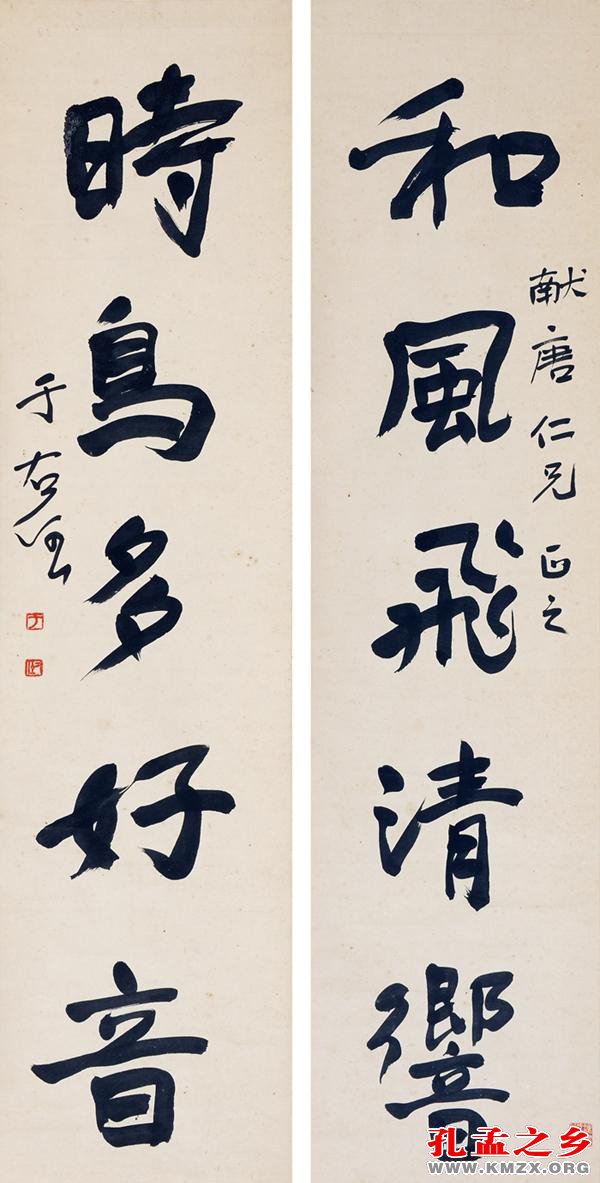 和風飛清響
献唐仁兄 正之
時鳥多好音
于右任
孔孟之乡
WWW.KMZX.ORG